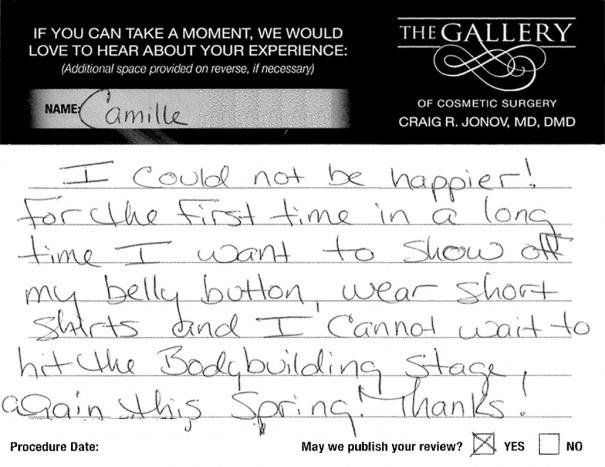 IF YOU CAN TAKE A MOMENT, WE WOULD
LOVE TO HEAR ABOUT YOUR EXPERIENCE:
(Additional space provided on reverse, if necessary)
NAME: Camille
THE GALLERY
OF COSMETIC SURGERY
CRAIG R. JONOV, MD, DMD
I Could not be happier!
for the first time in a long
time I want to show off
my belly button, wear short
Shirts and I Cannot wait to
hit the Bodybuilding stage,
again this Spring! Thanks!
Procedure Date:
May we publish your review? YES NO